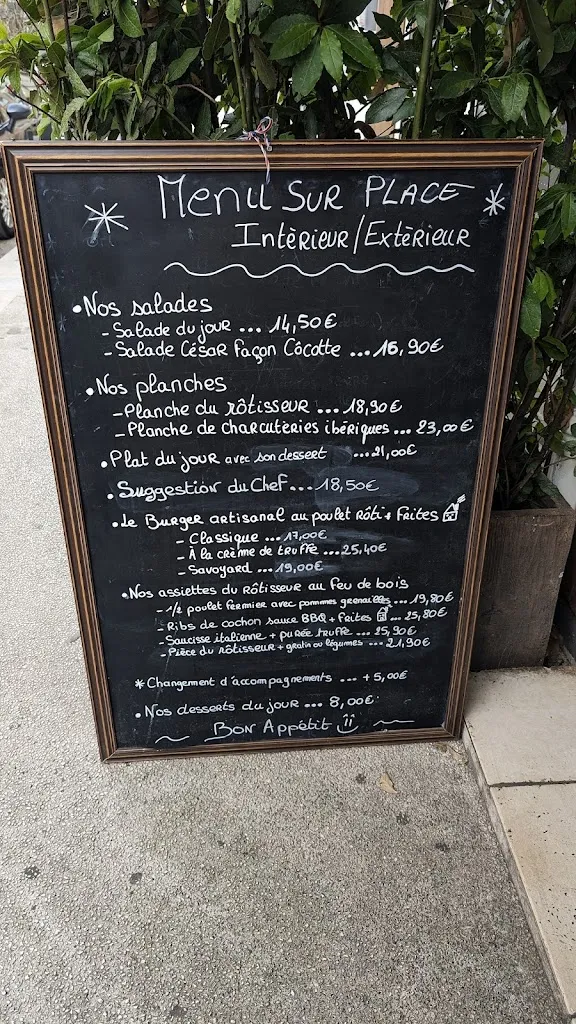 Menu sur place
Intérieur/Extérieur
• Nos salades
- Salade du jour ... 14,50€
- Salade César façon Côcotte ... 16,90€
• Nos planches
- Planche du rôtisseur ... 18,90€
- Planche de charcuteries ibériques ... 23,00€
• Plat du jour avec son dessert ....21,00€
• Suggestion du Chef... 18,50€
• Le Burger artisanal au poulet rôti + Frites
- Classique ... 17,00€
- À la crème de truffe ...25,40€
- Savoyard ... 19,00€
• Nos assiettes du Rôtisseur au feu de bois
- 1/2 poulet fermier avec pommes grenailles ... 19,80€
- Ribs de cochon sauce BBQ + frites ... 25,80€
- Saucisse italienne + purée truffe ... 25,90€
- Pièce du rôtisseur + gratin ou légumes ... 21,90€
* Changement d'accompagnements ... +5,00€
• Nos desserts du jour ... 8,00€
Bon Appétit